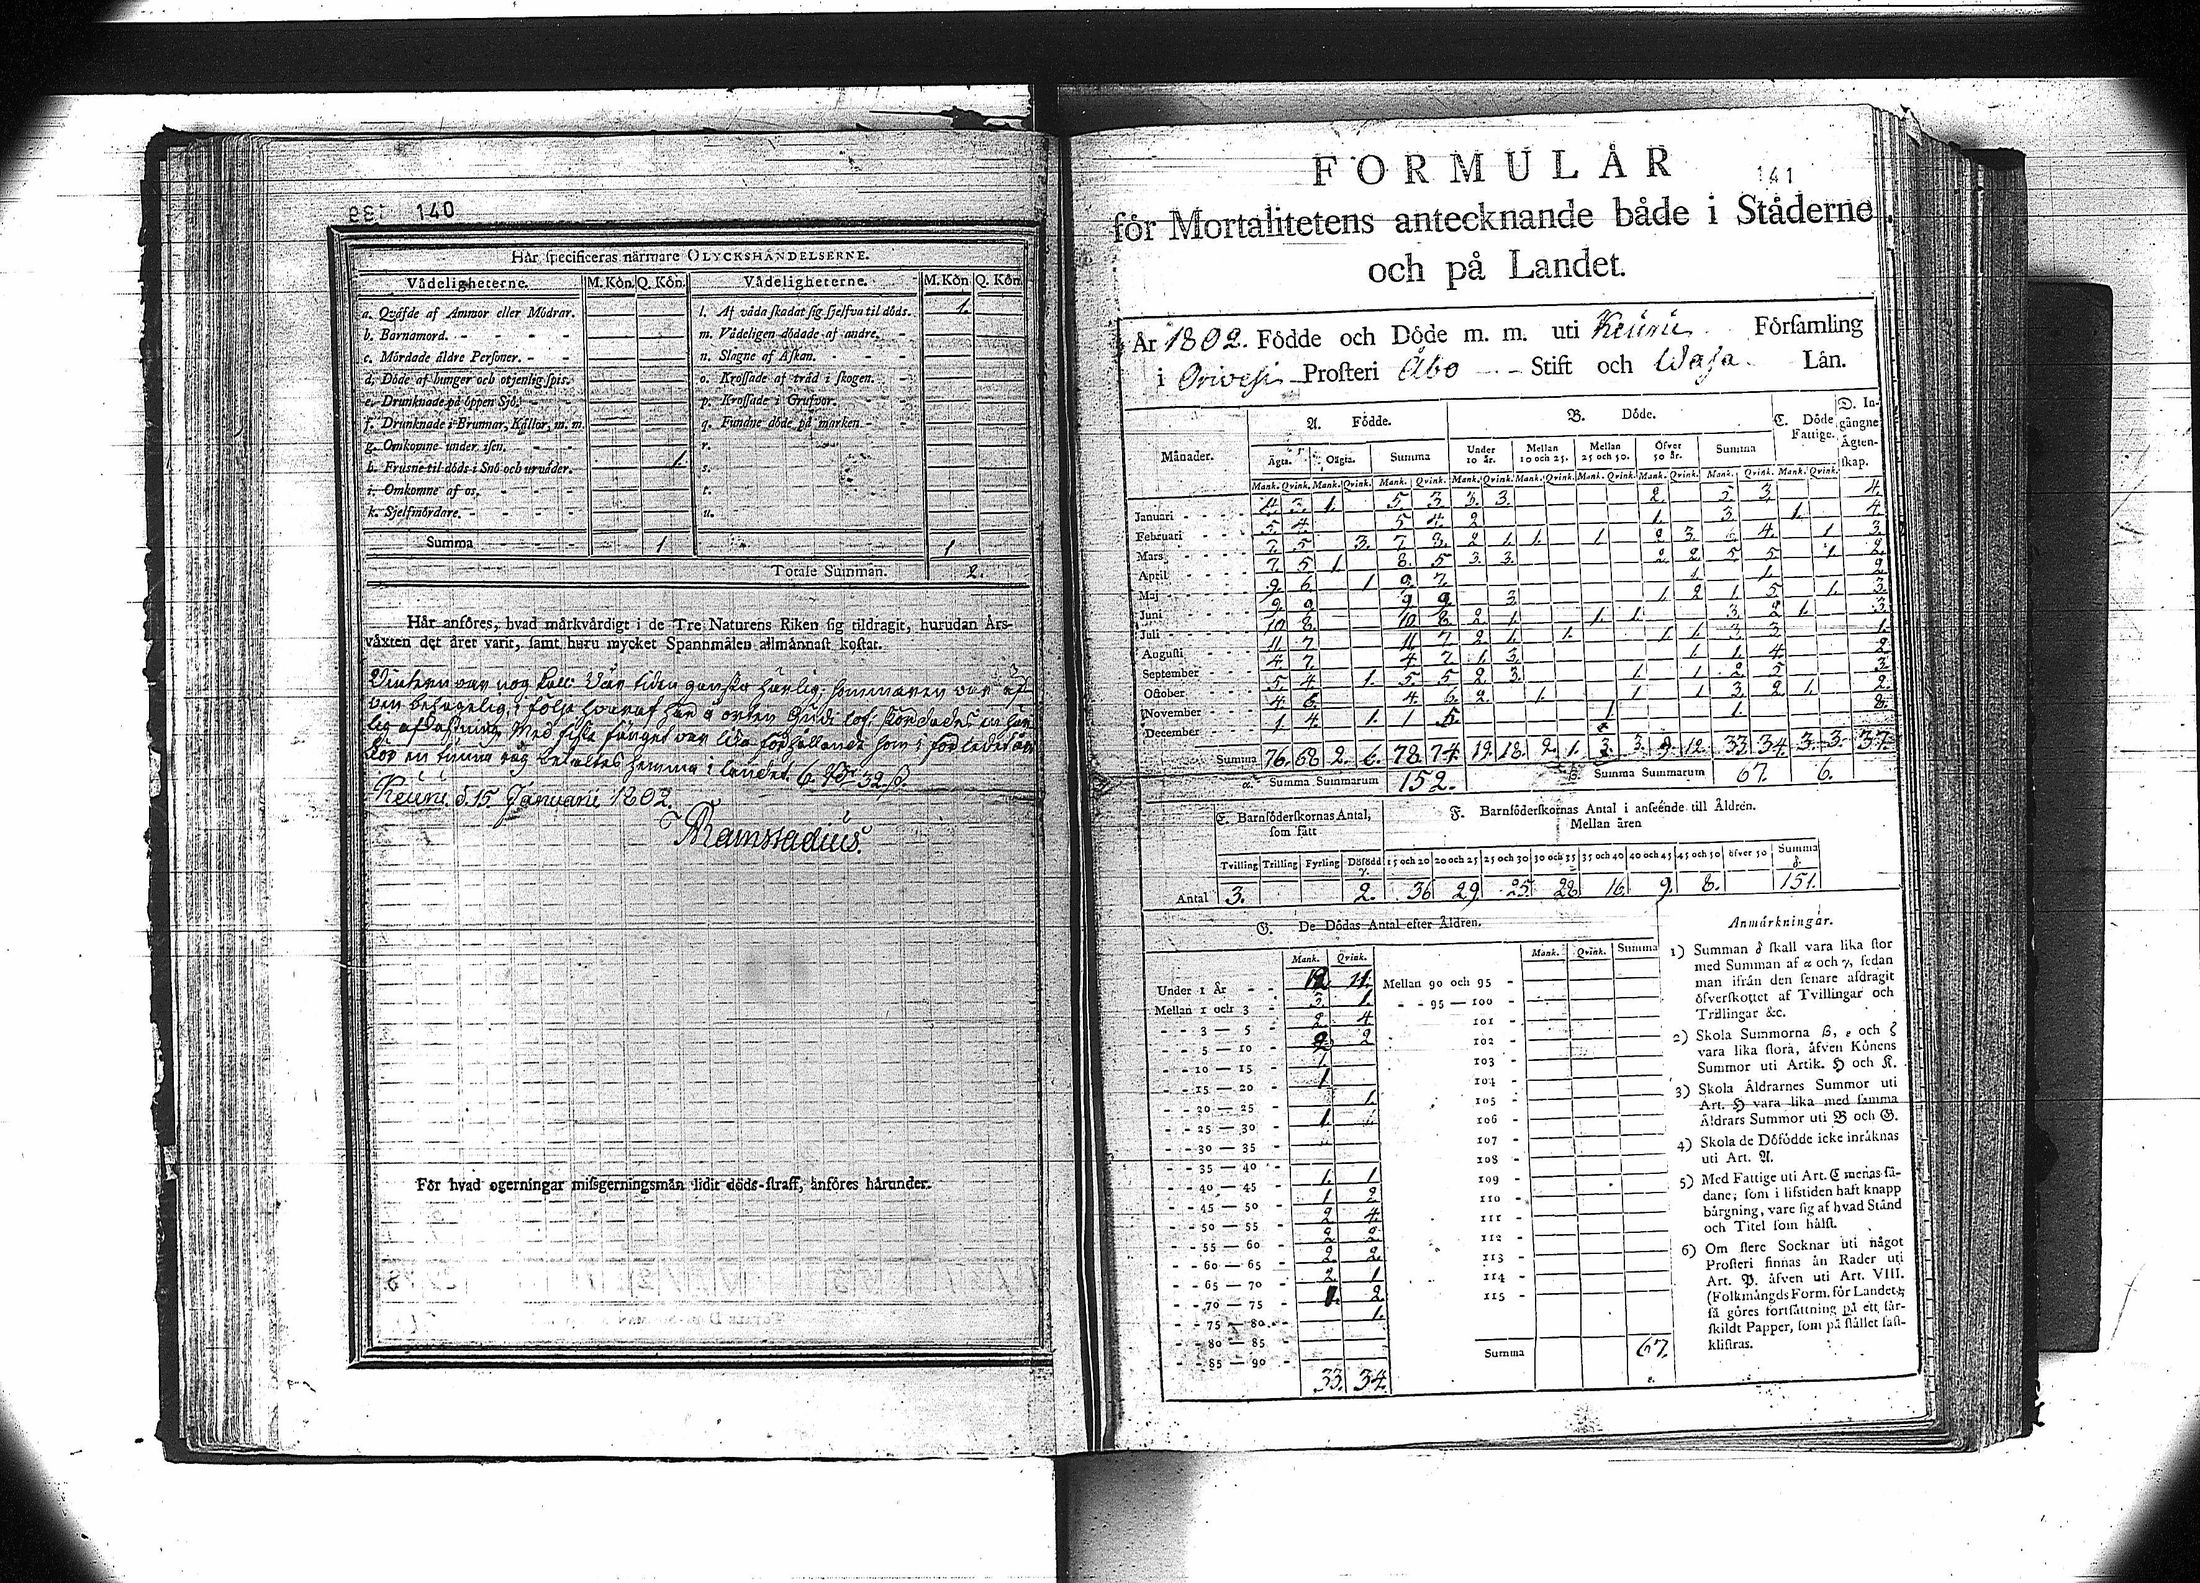 140
Här specificeras närmare OLYCKSHÄNDELSERNE.
Vådeligheterne. M. Kön. Q. Kön. Vådeligheterne. M. Kön Q. Kön.
a. Qväfde af Ammor eller Mödrar. l. Af våda skadat sig sjelfva til döds. 1.
b. Barnamord. m. Vådeligen dödade af andre.
c. Mördade äldre Personer. n. Slagne af Åskan.
d. Döde af hunger och otjenlig spis. o. Krossade af träd i skogen.
e. Drunknade på öppen Sjö. p. Krossade i Grufvor.
f. Drunknade i Brunnar, Källor, m. m. q. Fundne döde på marken
g. Omkomne under isen. r.
h. Frusne til döds i Snö och urväder. 1. s.
i. Omkomne af os. t.
k. Sjelfmördare. u.
Summa 1 1
Totale Summan. 2.
Här anföres, hvad märkvärdigt i de Tre Naturens Riken sig tildragit, hurudan Års-
växten det året varit, samt huru mycket Spannmålen allmännast kostat.
Vintern var nog Vår tiden ganska härlig, sommaren var
ven behagelig, i följe hvaraf här å orten Gudi lof
Med fiske fånget var lika förhållande som i
en tunna råg betaltes hemma i landet 6 32 ß.
Keuru d. 15 Januarii 1802.
Ramstadius.
För hvad ogerningar missgerningsmän lidit döds-straff, anföres härunder.
141
FORMULÄR
för Mortalitetens antecknande både i Städerne
och på Landet.
År 1802. Födde och Döde m. m. uti Keuru Församling
i Orivesi Prosteri Åbo Stift och Wasa Län.
A. Födde. B. Döde. C. Döde Fattige. D. Ingångne Ägtenskap.
Månader. Ägta. Oägta. Summa Under 10 år. Mellan 10 och 25. Mellan 25 och 50. Öfver 50 år. Summa
Mank. Qvink. Mank. Qvink. Mank. Qvink. Mank. Qvink. Mank. Qvink. Mank. Qvink. Mank. Qvink. Mank. Qvink. Mank. Qvink.
Januari 4. 3. 1. 5. 3. 3. 3. 2. 5 3. 4.
Februari 5 4. 5 4. 2 1. 3. 1. 4.
Mars 7. 5 3. 7. 8. 2 1. 1. 1. 2 3. 4. 1 3.
April 7. 5 1. 8. 5 3. 3. 2. 2. 5 5 1. 2.
Maj 9. 6. 1. 9. 7. 1. 1. 2
Juni 9. 9. 9 9. 3. 1. 2 1. 5 1. 3.
Juli 10 8. 10 8. 2. 1. 1. 1. 3. 2. 1. 3.
Augusti 11. 7. 11. 7 2 1. 1. 1. 1. 3 3. 1.
September 4 7. 4 7. 1. 3. 1 1. 4. 2
October 5. 4. 1. 5 5 2 3. 1. 1. 2. 5 3.
November 4 6. 4. 6 2. 1. 1 1. 3. 2 1. 2.
December 1. 4. 1. 1 5. 1. 1. 8.
Summa 76. 68 2. 6. 78. 74. 19. 18. 2. 1. 3. 3. 9. 12. 33. 34. 3. 3. 37.
α. Summa Summarum 152. β. Summa Summarum 67. 6.
E. Barnföderskornas Antal, som fått
F. Barnföderskornas Antal i anseende till Åldren.
Mellan åren
Tvilling Trilling Fyrling Dödfödd γ. 15 och 20 20 och 25 25 och 30 30 och 35 35 och 40 40 och 45 45 och 50 öfver 50 Summa δ.
Antal 3. 2. 36 29. 25 28 16. 9. 8. 151.
G. De Dödas Antal efter Åldren.
Mank. Qvink. Mank. Qvink. Summa
Under 1 År 12 11. Mellan 90 och 95
Mellan 1 och 3 3. 1. 95 — 100
3 — 5 2. 4. 101
5 — 10 2. 2 102
10 — 15 1. 103
15 — 20 1 104
20 — 25 1. 105
25 — 30 1. 106
30 — 35 107
35 — 40 108
40 — 45 1. 1 109
45 — 50 1 2 110
50 — 55 2 4. 111
55 — 60 2 2. 112
60 — 65 2 2. 113
65 — 70 2. 1 114
70 — 75 1. 2. 115
75 — 80 1.
80 — 85
85 — 90 Summa 67.
33. 34.
Anmärkningar.
1) Summan δ skall vara lika stor
med Summan af α och γ, sedan
man ifrån den senare afdragit
öfverskottet af Tvillingar och
Trillingar &c.
2) Skola Summorna β, ε och ζ
vara lika stora, äfven Könens
Summor uti Artik. H och K.
3) Skola Åldrarnes Summor uti
Art. H vara lika med samma
Åldrars Summor uti B och G.
4) Skola de Döfödde icke inräknas
uti Art. A.
5) Med Fattige uti Art. C menas så-
dane, som i lifstiden haft knapp
bärgning, vare sig af hvad Stånd
och Titel som hälst.
6) Om flere Socknar uti något
Prosteri finnas än Rader uti
Art. P. äfven uti Art. VIII.
(Folkmängds Form. för Landet,)
så göres fortsättning på ett sär-
skildt Papper, som på stället fast-
klistras.